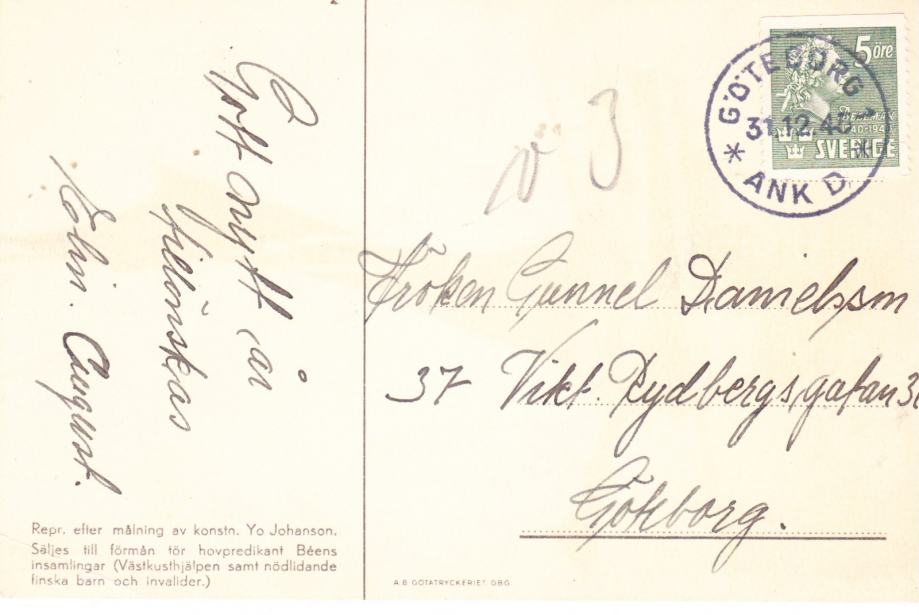 Gott Nytt år
tillönskas
Elin. August.
Repr. efter målning av konstn. Yo Johanson.
Säljes till förmån för hovpredikant Béens
insamlingar (Västkusthjälpen samt nödlidande
finska barn och invalider.)
A.B. GÖTATRYCKERIET, GBG
3
5 öre
BELLMAN
1740-1940
SVERIGE
GÖTEBORG 1
31.12.40
* ANK D *
Fröken Gunnel Danielsson
37 Vikt. Rydbergsgatan
Göteborg.